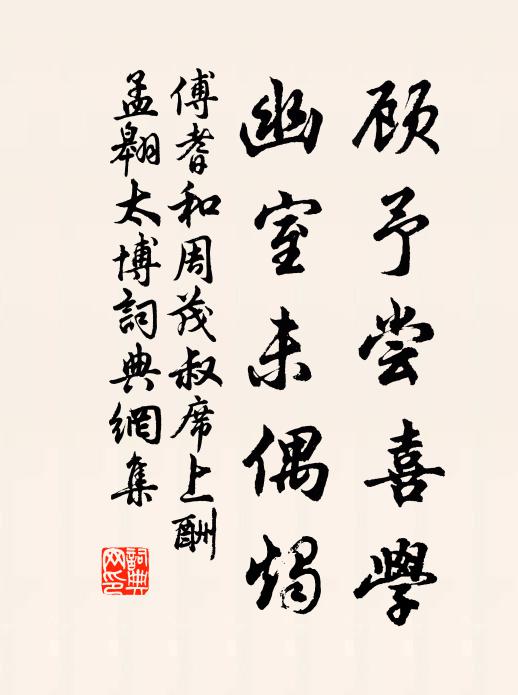 顾予尝喜學
幽室未偶燭
傅耆和周茂叔席上酬
孟翱太博詞典網集
詞典网印